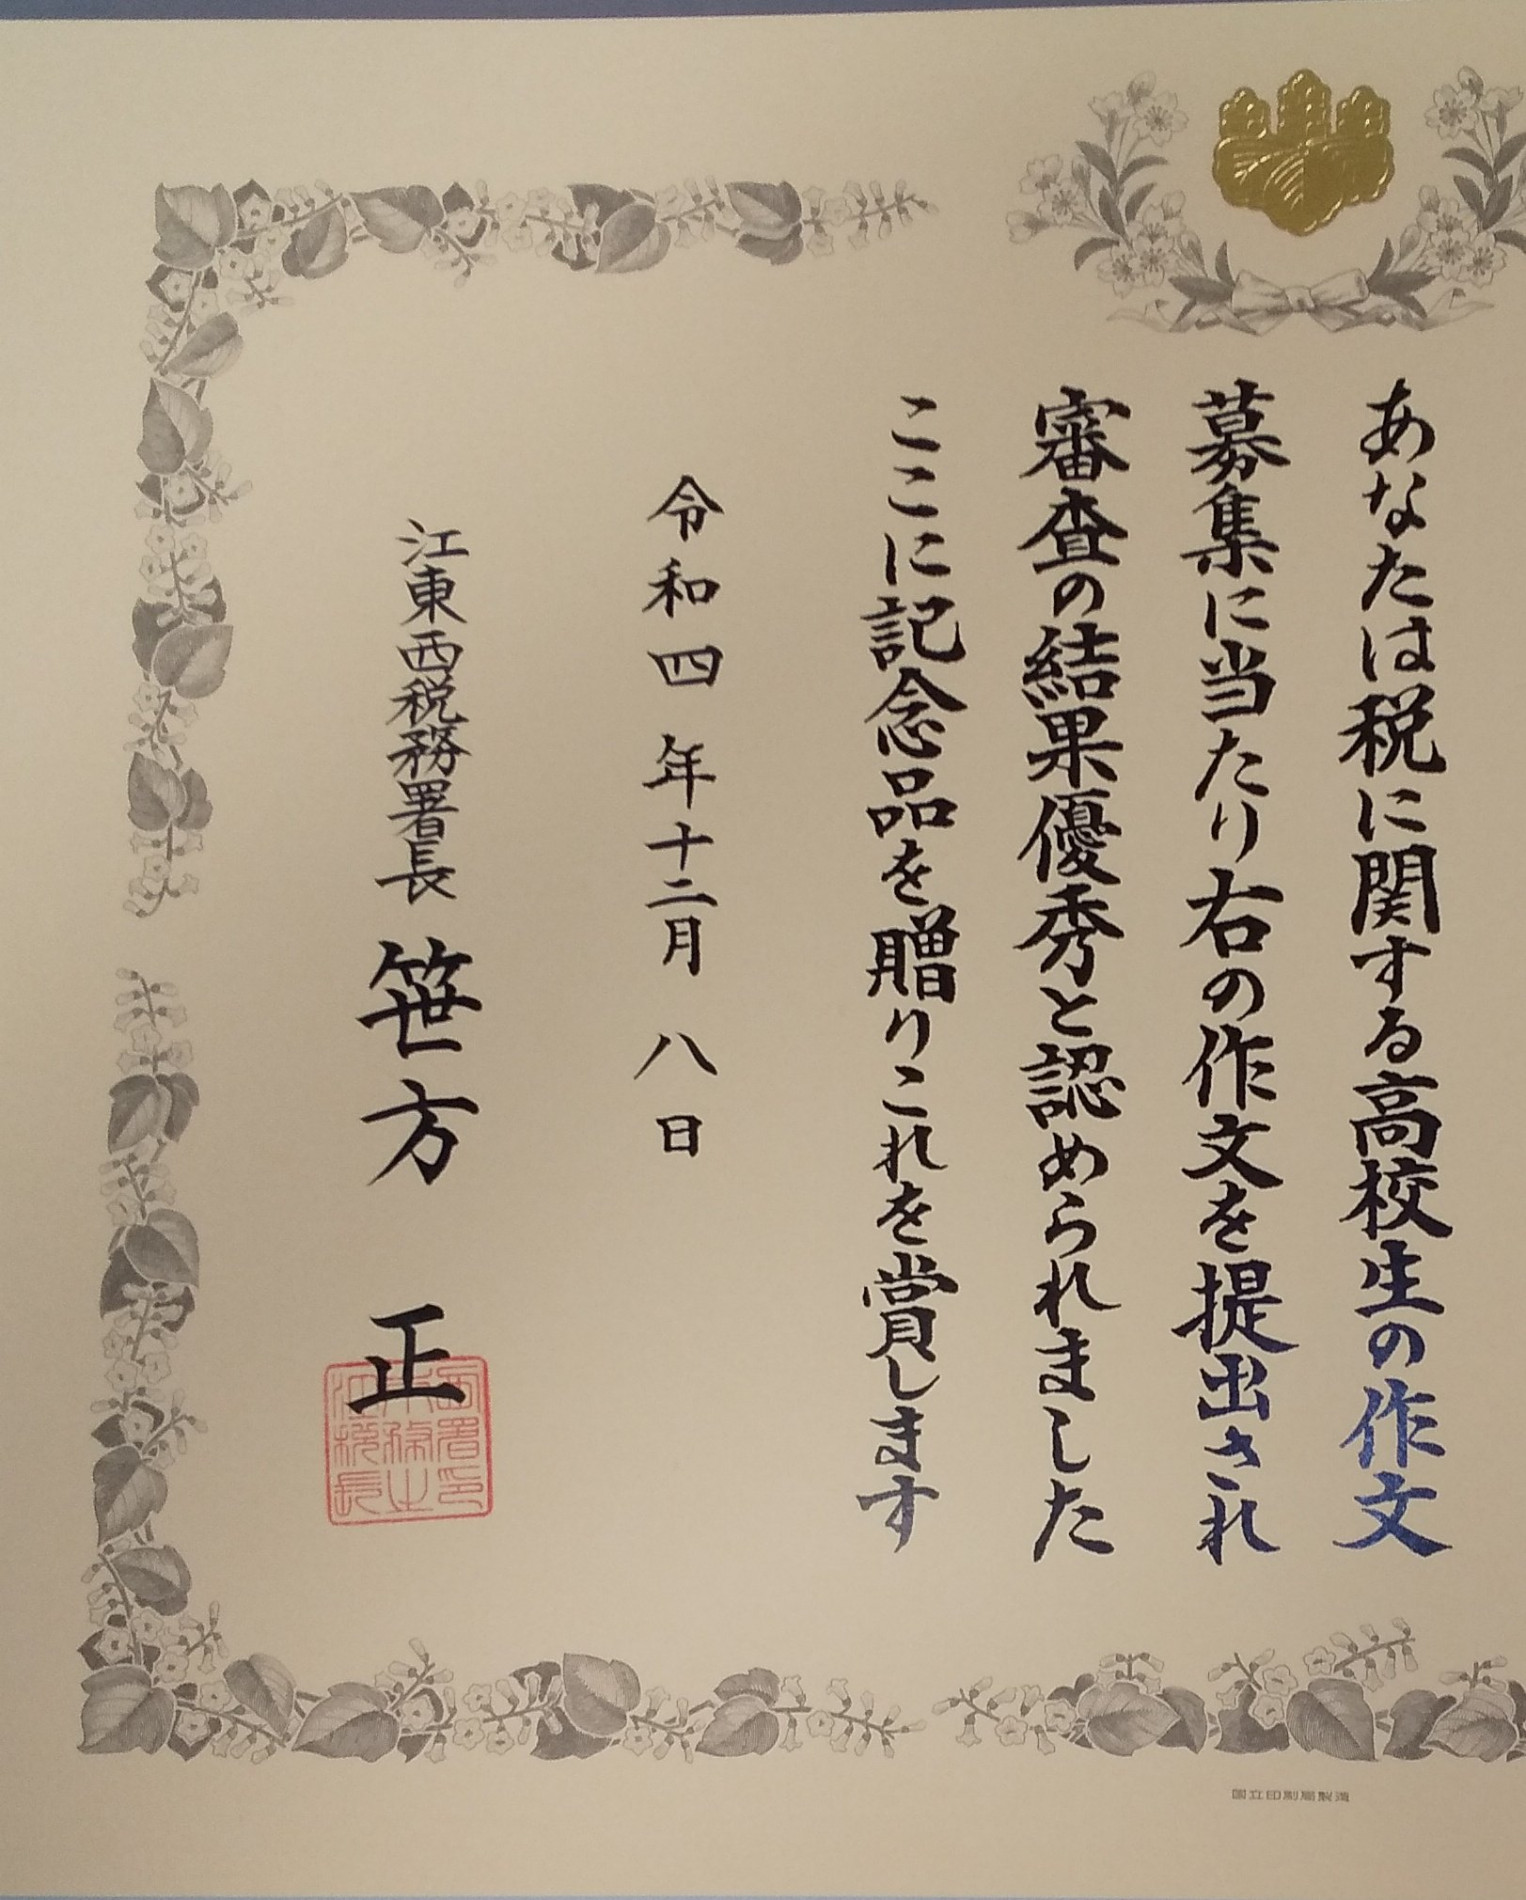 あなたは税に関する高校生の作文
募集に当たり右の作文を提出され
審査の結果優秀と認められました
ここに記念品を贈りこれを賞します
令和四年十二月八日
江東西税務署長 笹方 正
江東西税務署長之印
国立印刷局製造